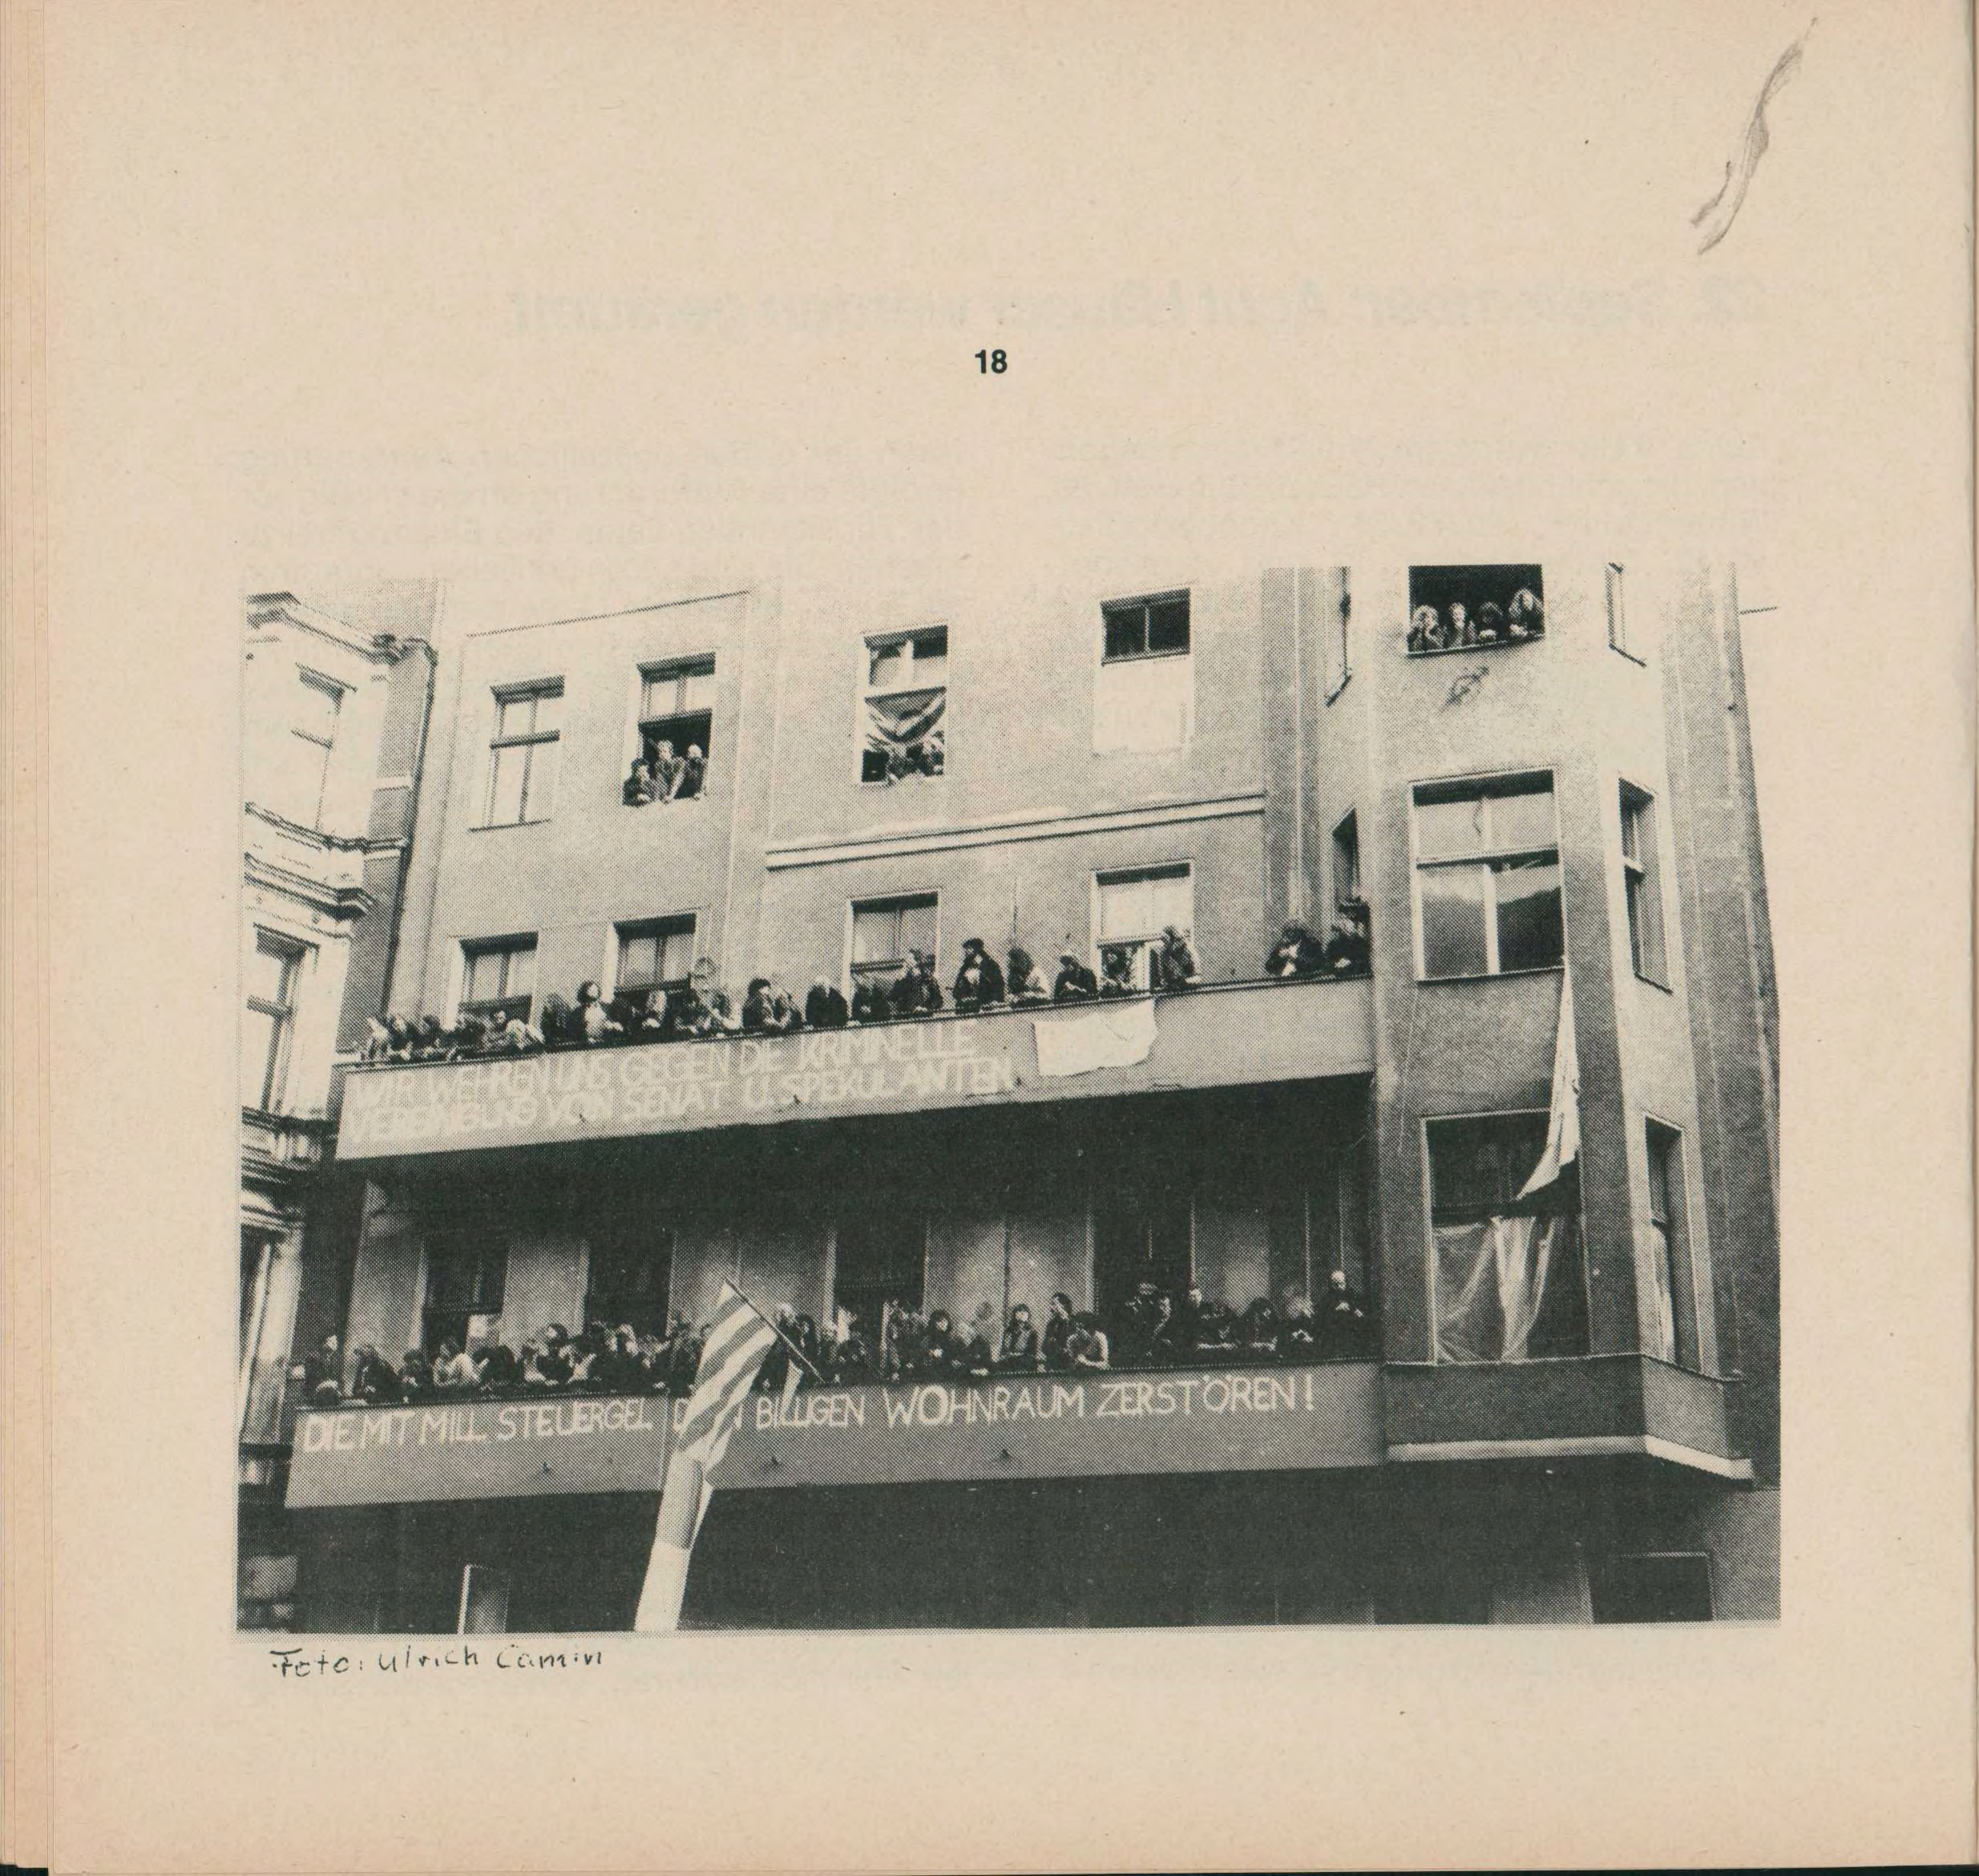 18
WIR WEHREN UNS GEGEN DIE KRIMINELLE
VEREINIGUNG VON SENAT U. SPEKULANTEN
DIE MIT MILL. STEUERGEL BILLIGEN WOHNRAUM ZERSTÖREN!
Foto: Ulrich Camin